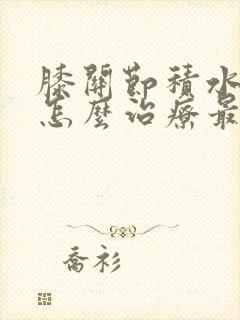 膝關節積水
怎麼治療最
喬衫